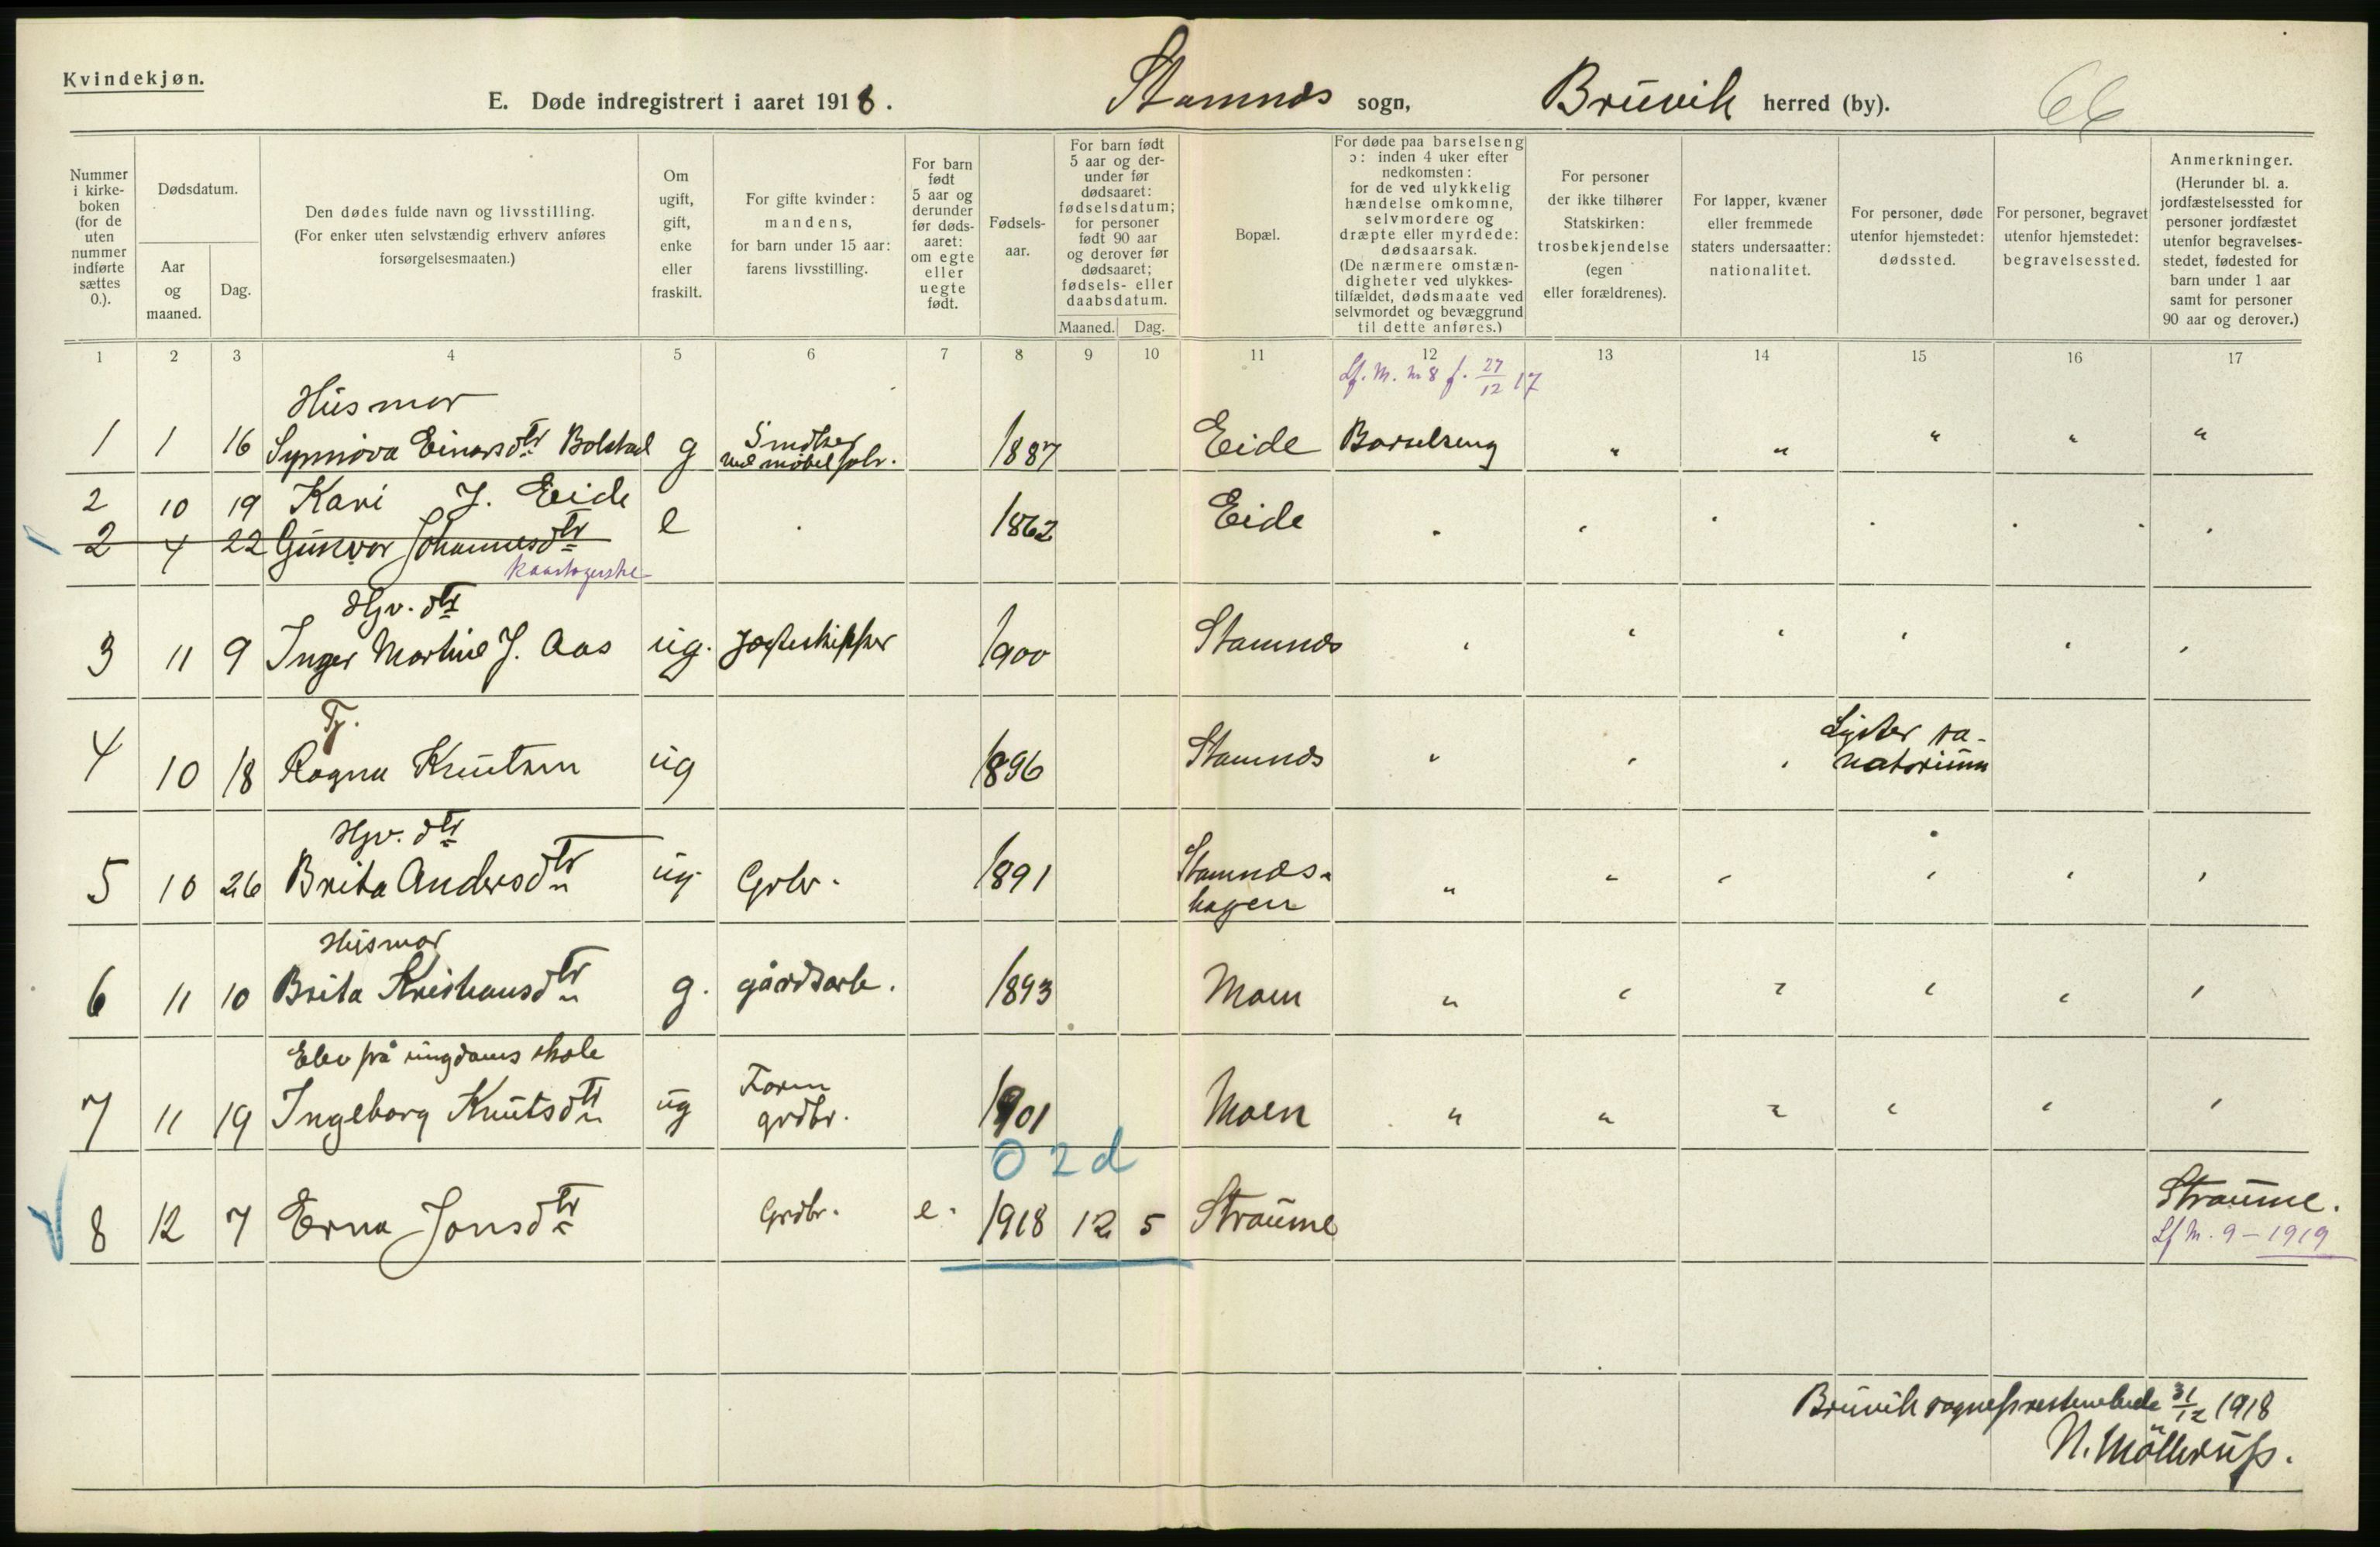 Kvindekjøn.
E. Døde indregistrert i aaret 1918. Stamnes sogn, Bruvik herred (by). 66
Nummer i kirke-boken (for de uten nummer indførte sættes 0.).
Dødsdatum.
Aar og maaned.
Dag.
Den dødes fulde navn og livsstilling.
(For enker uten selvstændig erhverv anføres forsørgelsesmaaten.)
Om ugift, gift, enke eller fraskilt.
For gifte kvinder: mandens, for barn under 15 aar: farens livsstilling.
For barn født 5 aar og derunder før døds-aaret: om egte eller uegte født.
Fødsels-aar.
For barn født 5 aar og der-under før dødsaaret: fødselsdatum; for personer født 90 aar og derover før dødsaaret; fødsels- eller daabsdatum.
Maaned. Dag.
Bopæl.
For døde paa barselseng ɔ: inden 4 uker efter nedkomsten: for de ved ulykkelig hændelse omkomne, selvmordere og dræpte eller myrdede: dødsaarsak. (De nærmere omstæn-digheter ved ulykkes-tilfældet, dødsmaate ved selvmordet og bevæggrund til dette anføres.)
For personer der ikke tilhører Statskirken: trosbekjendelse (egen eller forældrenes).
For lapper, kvæner eller fremmede staters undersaatter: nationalitet.
For personer, døde utenfor hjemstedet: dødssted.
For personer, begravet utenfor hjemstedet: begravelsessted.
Anmerkninger. (Herunder bl. a. jordfæstelsessted for personer jordfæstet utenfor begravelses-stedet, fødested for barn under 1 aar samt for personer 90 aar og derover.)
1 2 3 4 5 6 7 8 9 10 11 12 13 14 15 16 17
Lf. M. n 8 f. 27/12 17
Husmor
1 1 16 Synnöva Einarsdtr Bolstad g Snidker ved möbelfabr. 1887 Eide Barselseng " " " " "
2 10 19 Kari J. Eide e 1862 Eide
2 4 22 Gunvor Johannesdtr
Hjv. dtr
3 11 9 Inger Martine J. Aas ug. Jægteskipper 1900 Stamnes
Tj.
4 10 18 Ragna Knutsen ug 1896 Stamnes Lyster sa-natorium
Hjv. dtr
5 10 26 Brita Andersdtr ug Grbr. 1891 Stamnes-hagen "
Husmor
6 11 10 Brita Kristiansdtr g. gårdsarb. 1893 Moen "
Elev på ungdoms skole
7 11 19 Ingeborg Knutsdtr ug Form grdbr. 1901 Moen " "
0 2 d
8 12 7 Erna Jonsdtr Grdbr. e. 1918 12 5 Straume Straume.
Lf M. 9 - 1919
Bruvik sogneprestembede 31/12 1918
N. Möllerup.